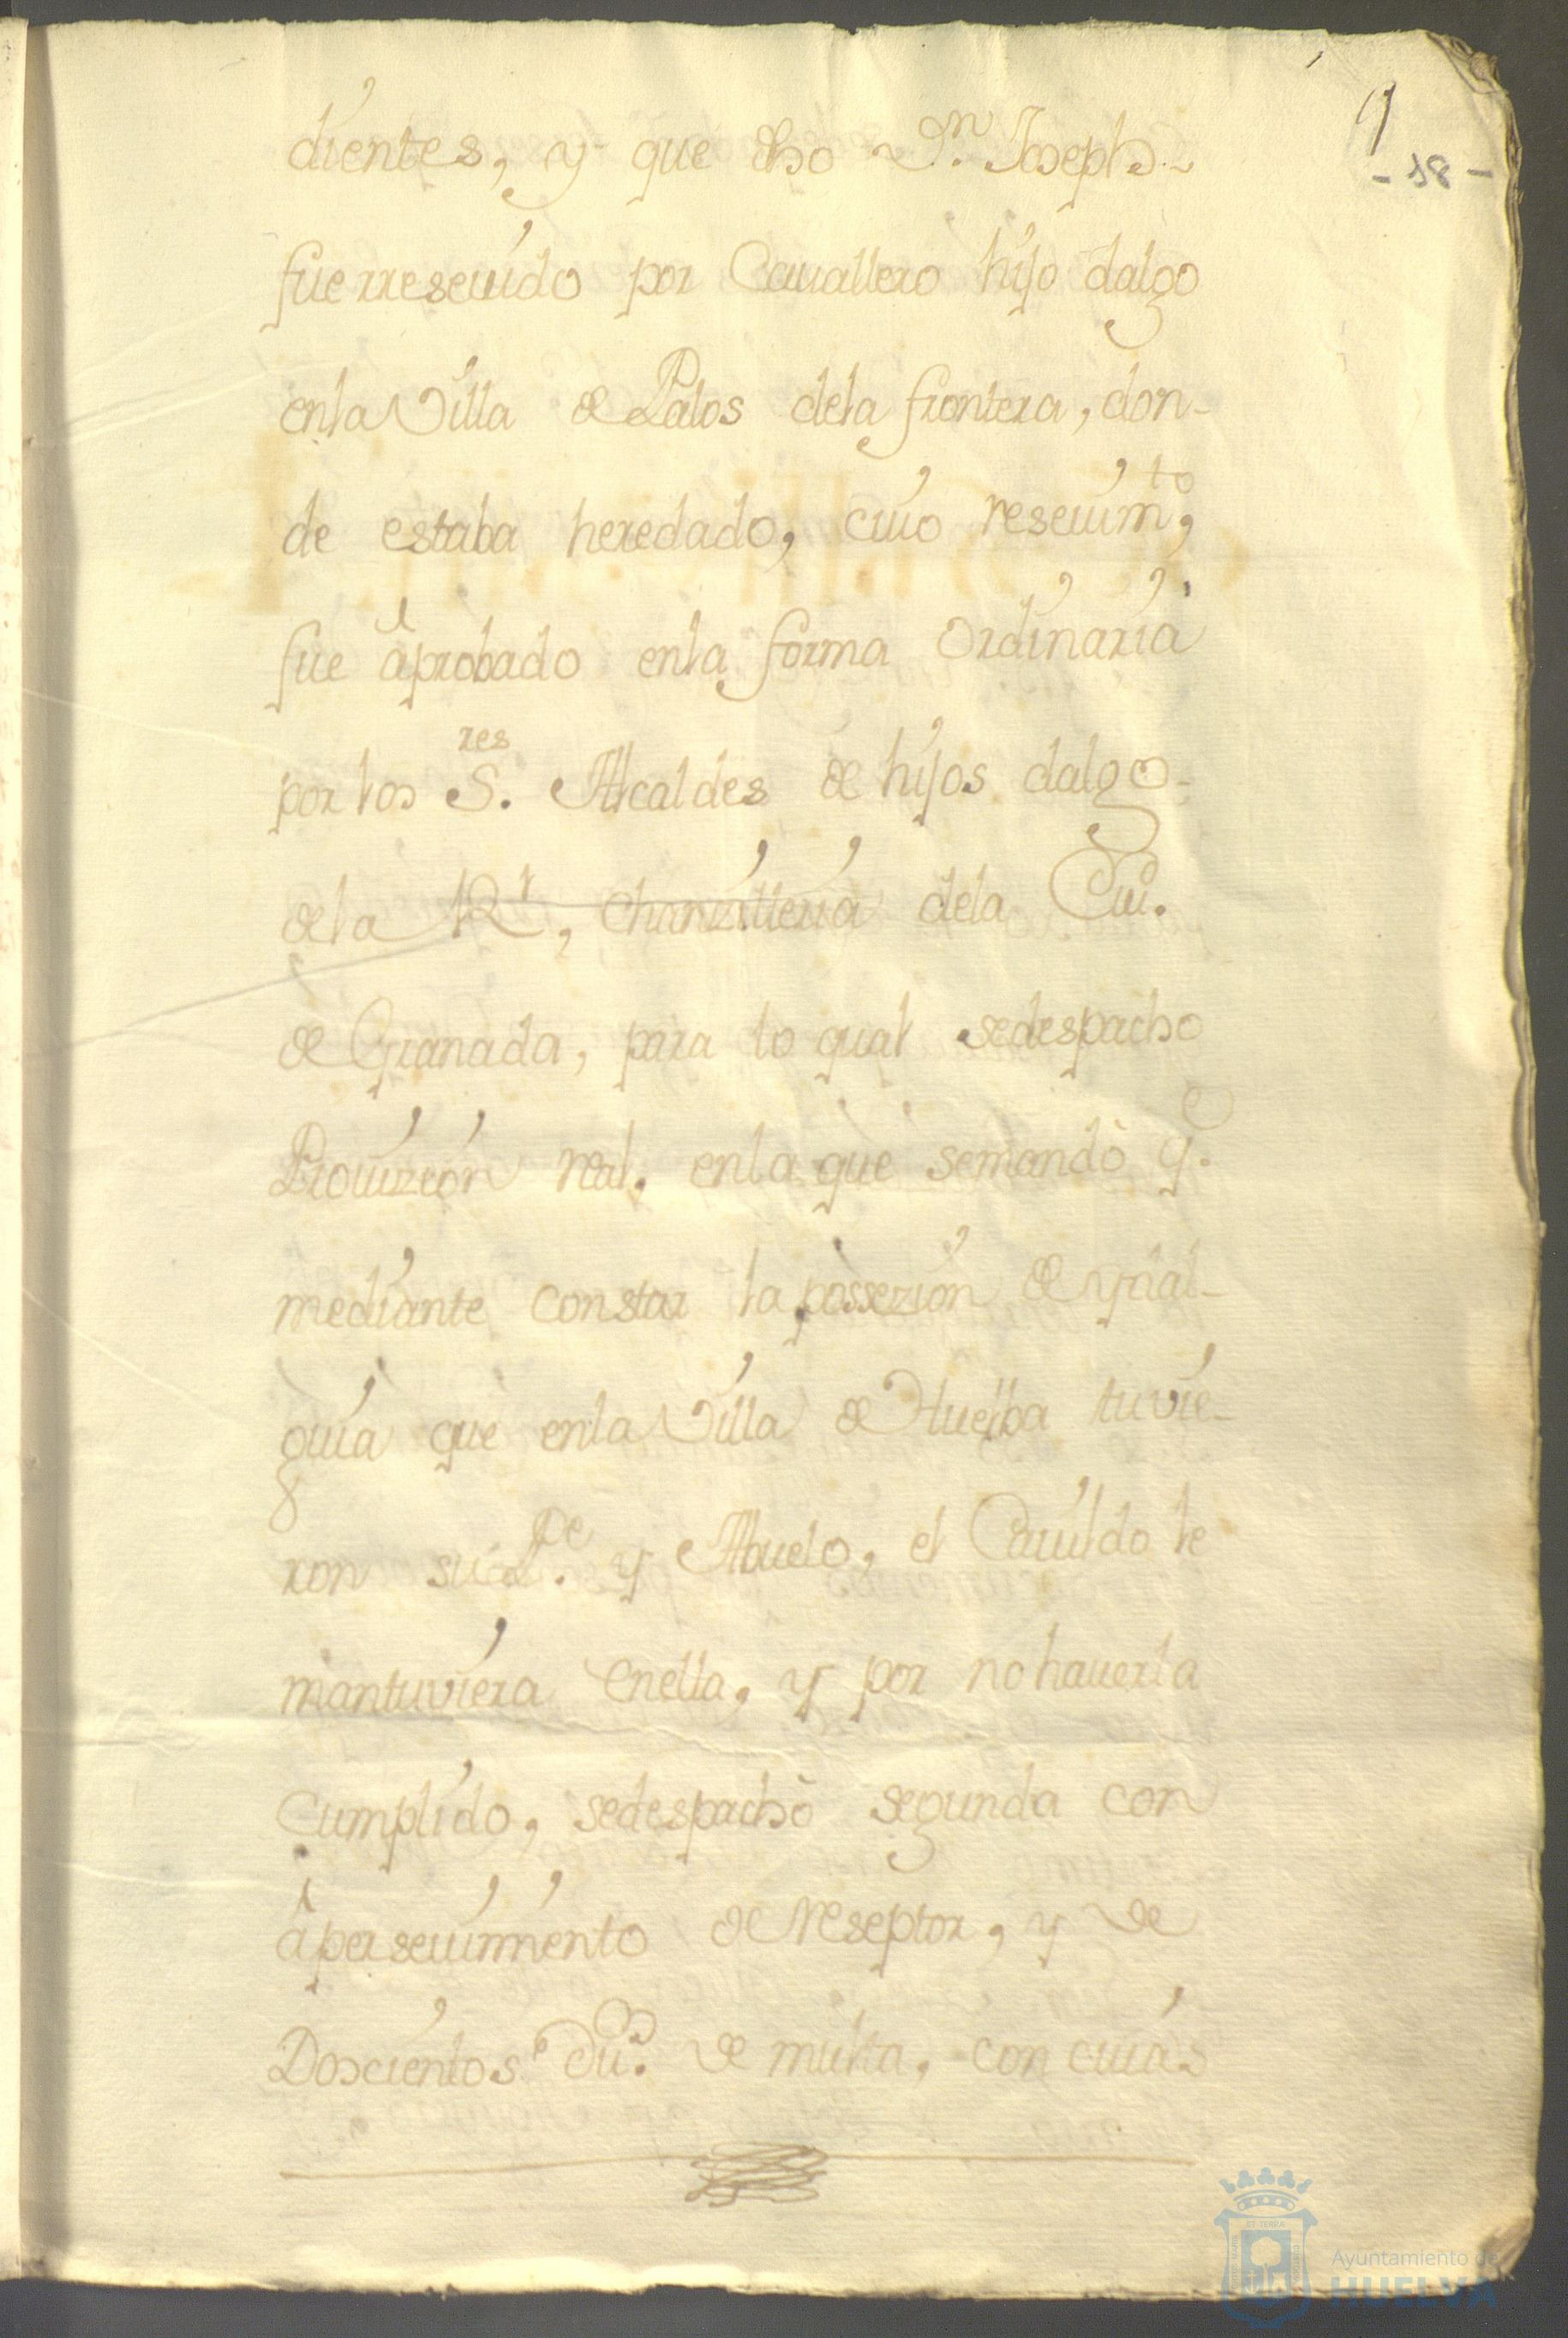 9
- 18 -
dientes, y que dho Dn. Joseph
fue rreseuido por Cauallero hijo dalgo
enla Villa de Palos dela frontera, don-
de estaba heredado, cuio reseuimto,
fue âprobado enla forma Ordinaria
por los Sres. Alcaldes de hijos dalgo
dela Rl, chanzilleria dela Ciu.
de Granada, para lo qual sedespacho
Prouizion real. enla que semandò qe.
mediante constar la possezion de ydal-
guia que enla Villa de Huelba tuvie-
ron su Pe. y Abuelo, el Cauildo le
mantuviera enella, y por nohauerla
Cumplido, sedespachò segunda con
âperseuimiento de Reseptor, y de
Doscientos Dus. de multa, con cuias
Ayuntamiento de
HUELVA